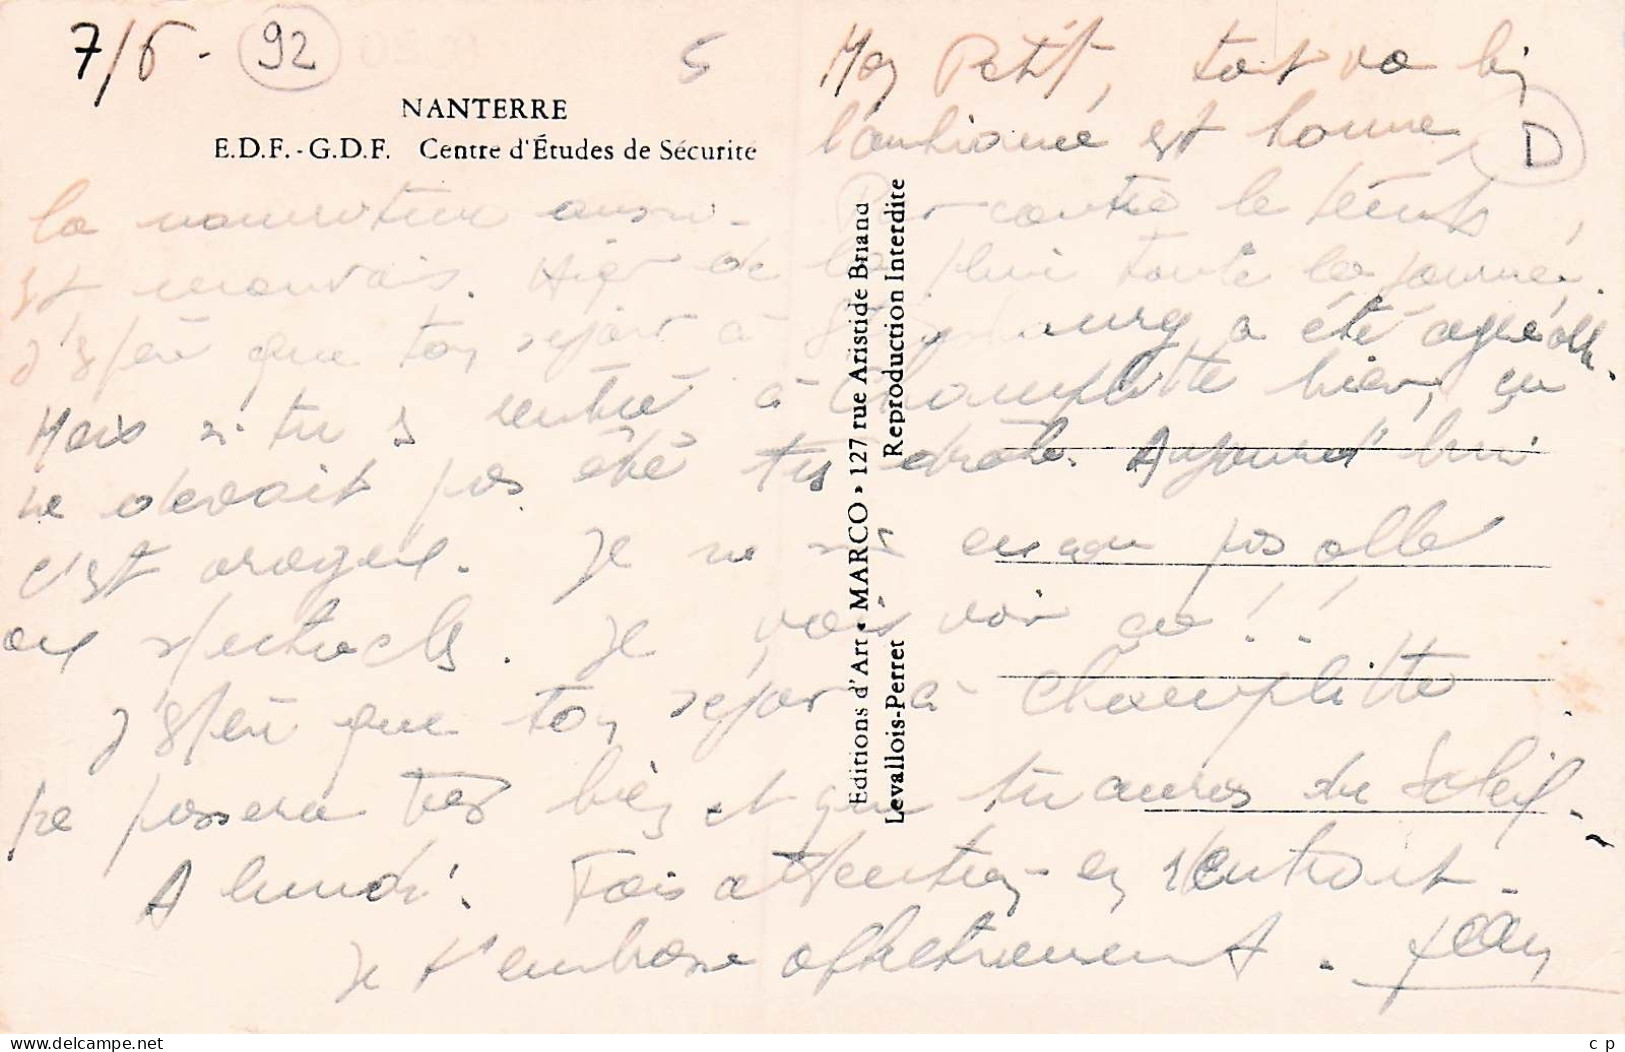 7/6 - 92 5
Mon Petit, tout va bien
NANTERRE
E.D.F. - G.D.F. Centre d'Études de Sécurité
l'ambiance est bonne D
la nourriture aussi - Par contre le temps
est mauvais. Hier de la pluie toute la journée.
J'espère que ton séjour à a été agréable.
Mais si tu es rentré à Champlitte hier, ça
ne devait pas être très drôle. Aujourd'hui
c'est orageux. Je ne suis encore pas allé
au spectacle. Je vais voir ce!!
J'espère que ton séjour à Champlitte
se passera très bien et que tu auras du Soleil.
A lundi. Fais attention en rentrant.
Je t'embrasse affectueusement. Jean
Editions d'Art • MARCO • 127 rue Aristide Briand
Levallois-Perret Reproduction Interdite
www.delcampe.net
c p